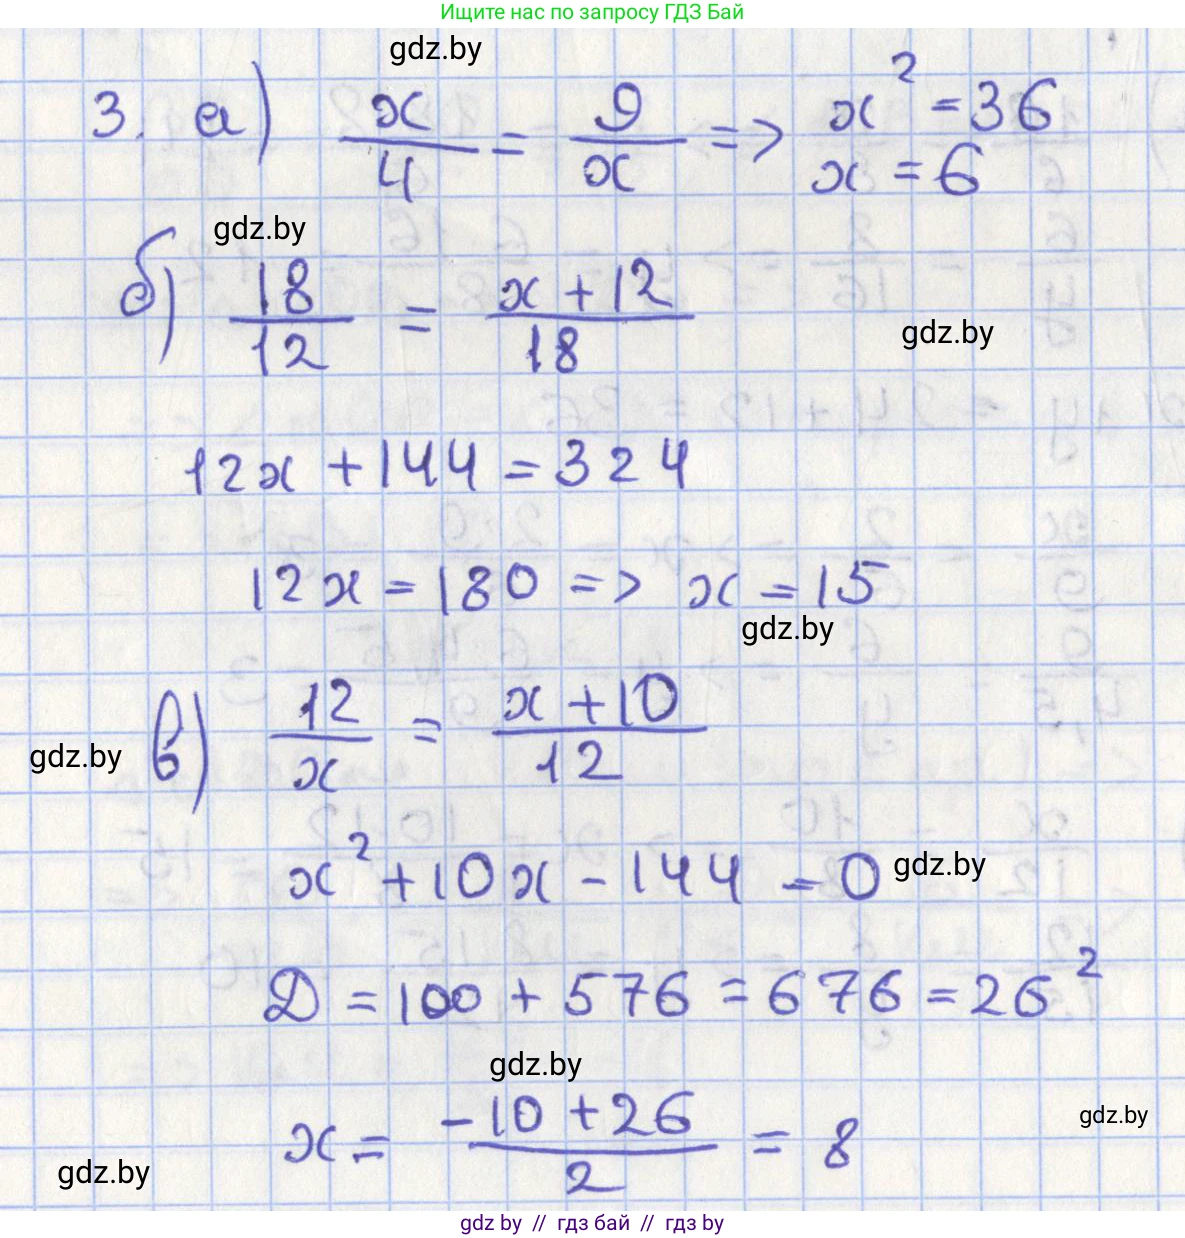 Ищите нас по запросу ГДЗ Бай
gdz.by
3. а) x/4 = 9/x => x² = 36
x = 6
gdz.by
б) 18/12 = x + 12/18
gdz.by
12x + 144 = 324
12x = 180 => x = 15
gdz.by
в) 12/x = x + 10/12
gdz.by
x² + 10x - 144 = 0
gdz.by
Д = 100 + 576 = 676 = 26²
gdz.by
x = -10 + 26/2 = 8
gdz.by
gdz.by
gdz by // гдз бай // гдз by